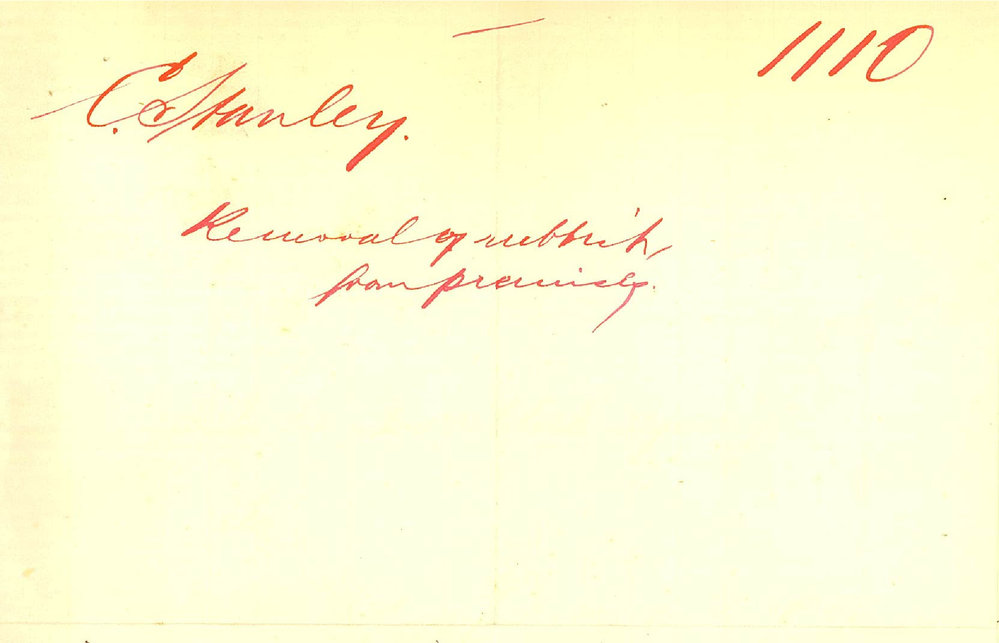 1110
C. Stanley.
Removal of rubbish
from premises.